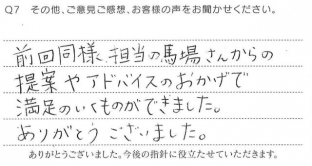 Q7 その他、ご意見ご感想、お客様の声をお聞かせください。
前回同様、担当の馬場さんからの
提案やアドバイスのおかげで
満足のいくものができました。
ありがとうございました。
ありがとうございました。今後の指針に役立たせていただきます。